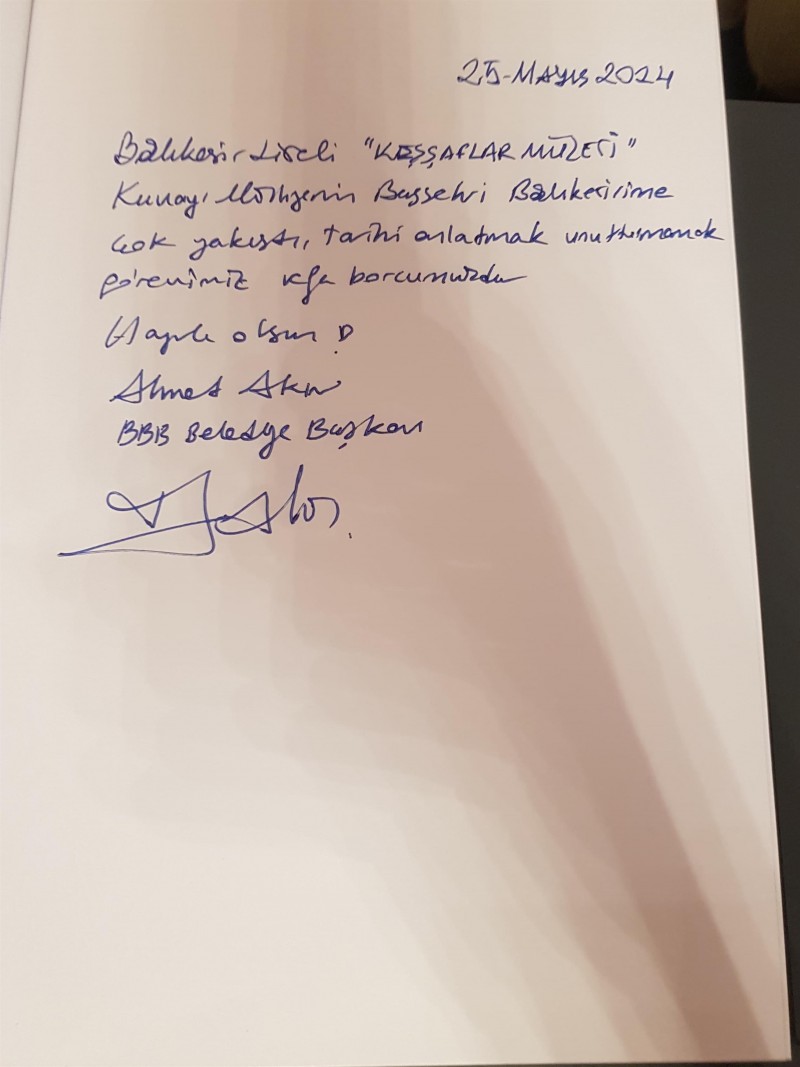 25-Mayıs 2024
Balıkesir Liseli "KEŞŞAFLAR MÜZESİ"
Kuvayi Milliyenin Başşehri Balıkesirime
çok yakıştı, tarihi anlatmak unutturmamak
görevimiz vefa borcumuzdur
Hayırlı olsun!
Ahmet Akın
BBB Belediye Başkanı